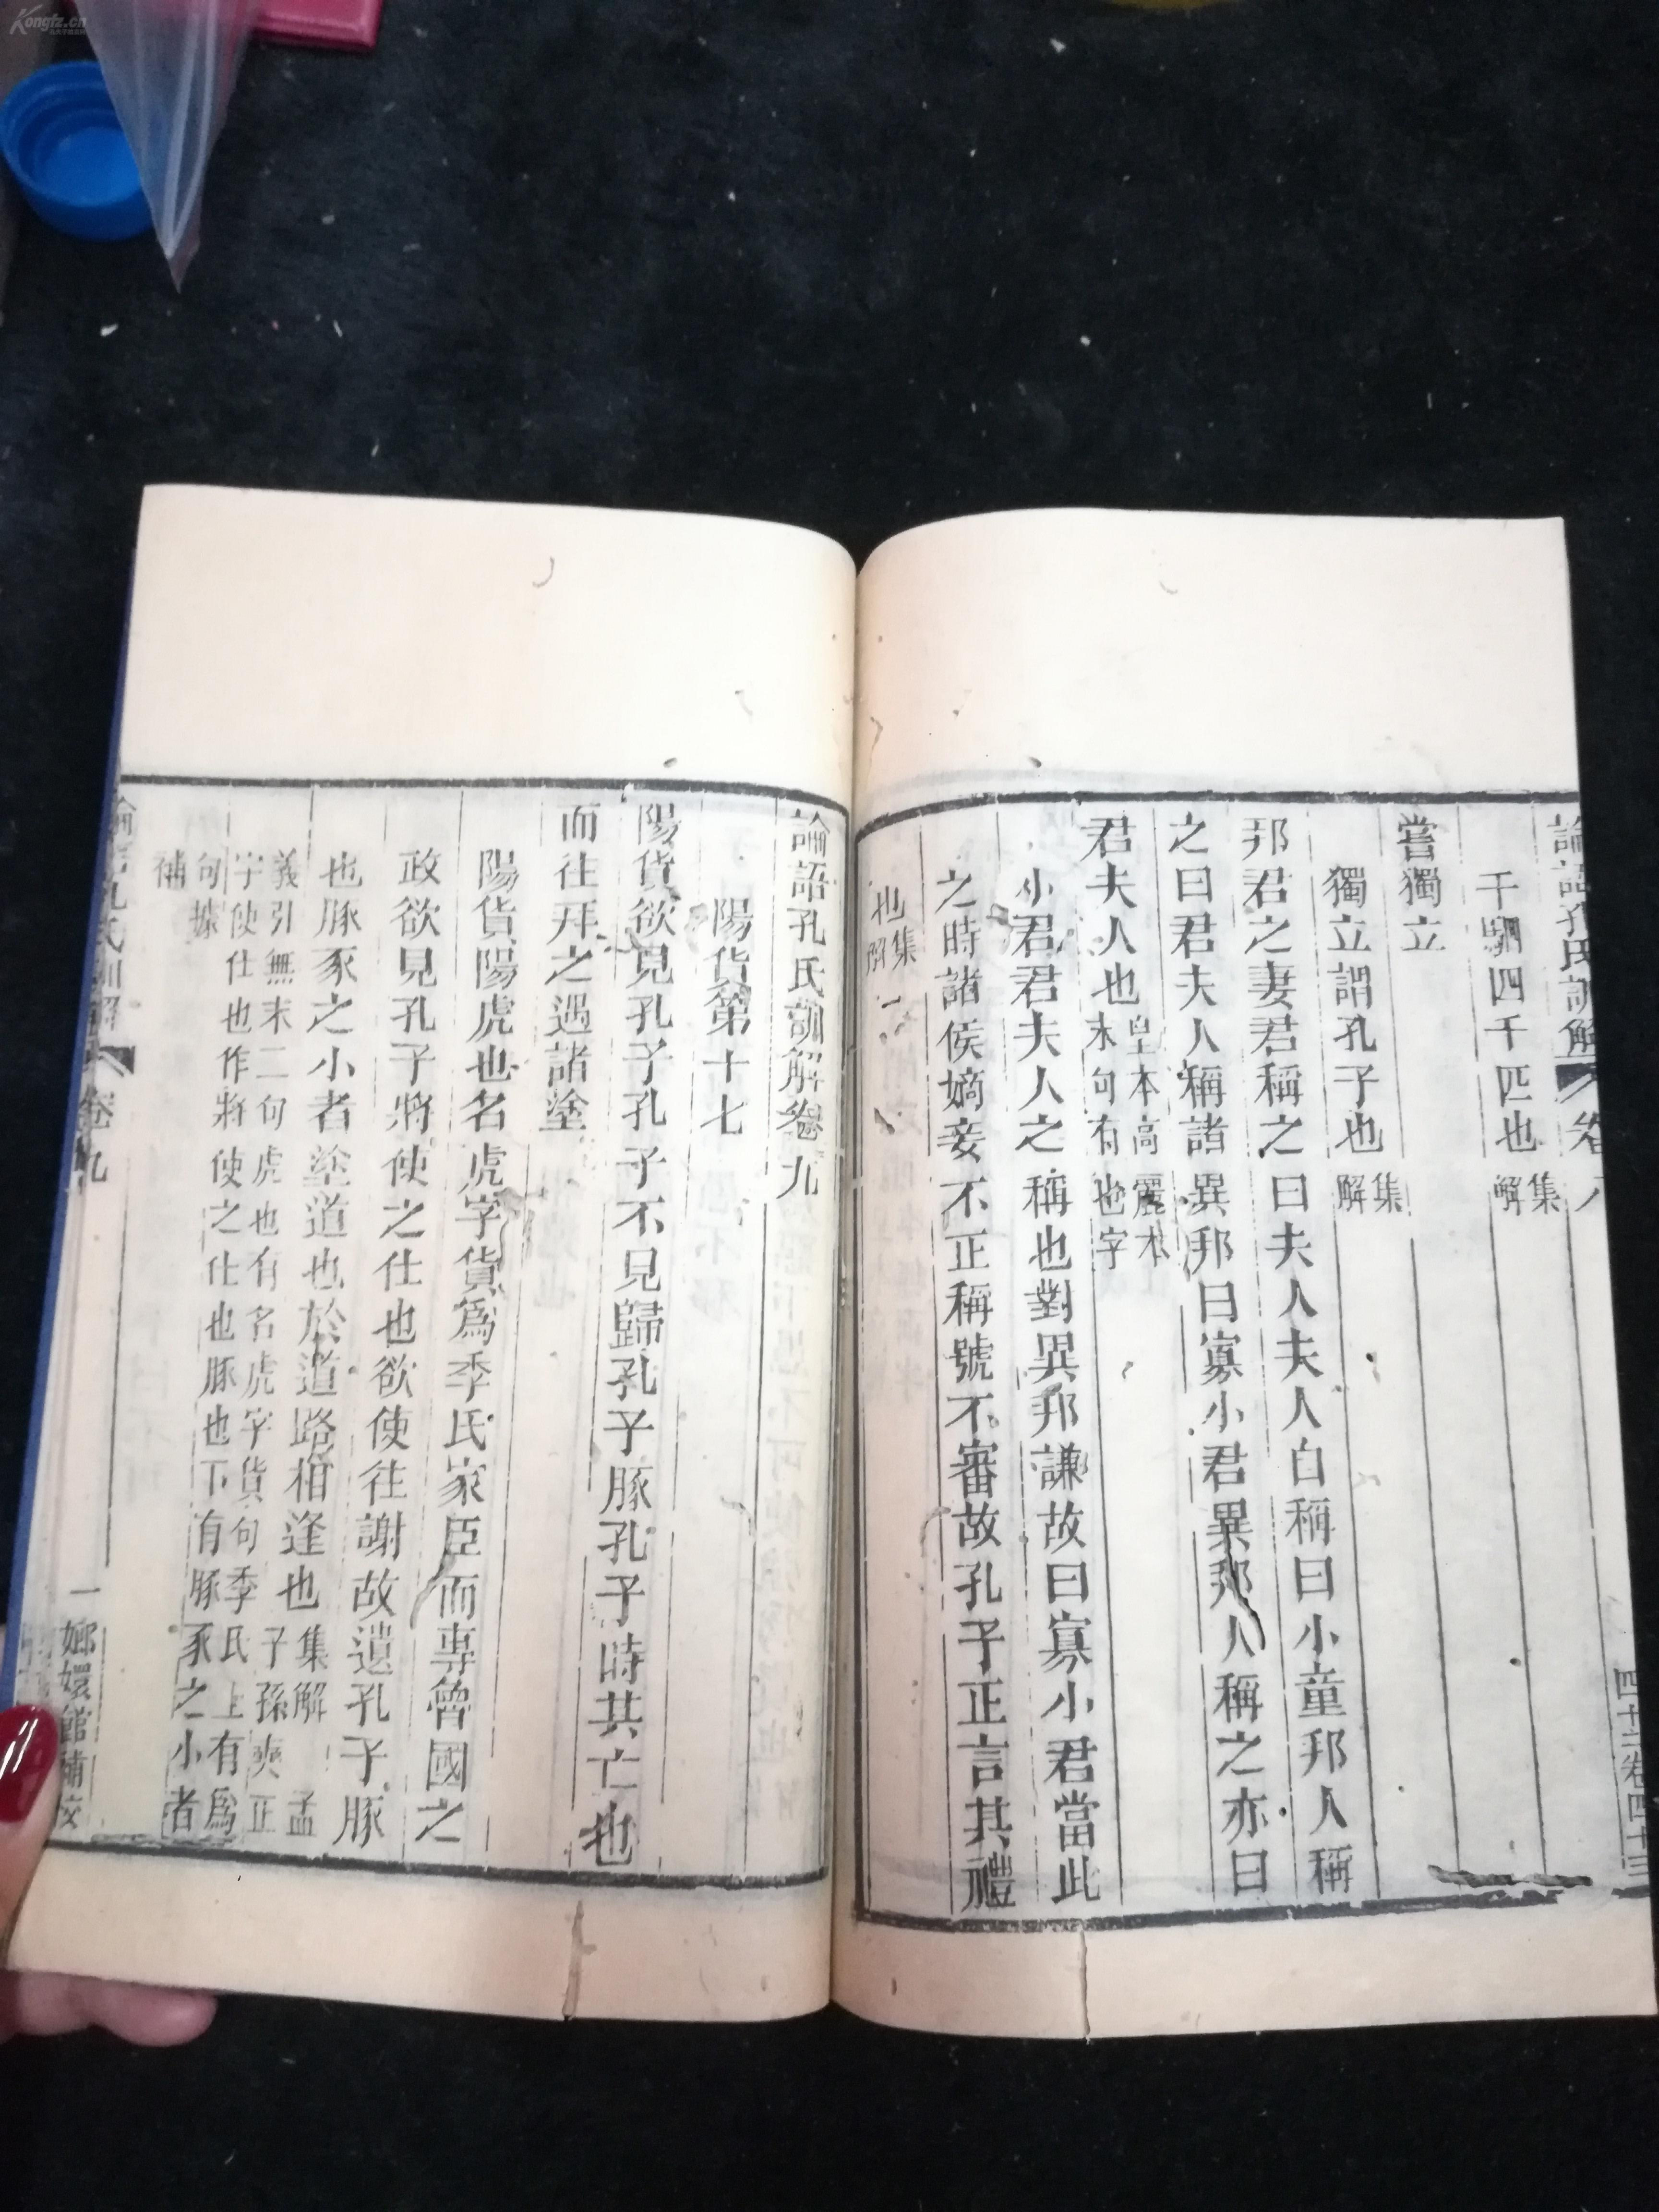 論語孔氏訓解 卷八
四十三卷四十三
千駟四千匹也集解
嘗獨立
獨立謂孔子也集解
邦君之妻君稱之曰夫人夫人自稱曰小童邦人稱
之曰君夫人稱諸異邦曰寡小君異邦人稱之亦曰
君夫人也皇本高麗本末句有也字
小君君夫人之稱也對異邦謙故曰寡小君當此
之時諸侯嫡妾不正稱號不審故孔子正言其禮
也集解
論語孔氏訓解卷九
陽貨第十七
陽貨欲見孔子孔子不見歸孔子豚孔子時其亡也
而往拜之遇諸塗
陽貨陽虎也名虎字貨爲季氏家臣而專魯國之
政欲見孔子將使之仕也欲使往謝故遺孔子豚
也豚豕之小者塗道也於道路相逢也集解 孟子孫奭正
義引無末二句虎也有名虎字貨句季氏上有爲
字使仕也作將使之仕也豚也下有豚豕之小者
句據補
論語孔氏訓解 卷九
一 嫏嬛館補校
Kongfz.cn